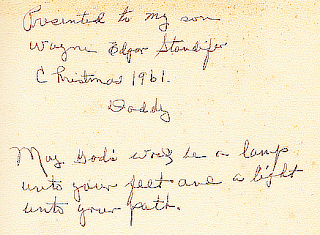 Presented to my son
Wayne Edgar Standifer
Christmas 1961.
Daddy
May God's word be a lamp
unto your feet and a light
unto your path.